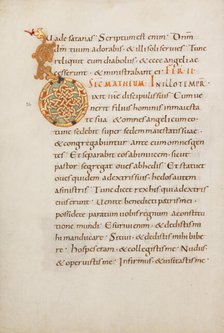 Uade satanas Scriptum est enim Dnm
dm tuum adorabis & illi soli seruies Tunc
reliquit eum diabolus & ecce angeli ac
cesserunt & ministrabant ei FER II
SEC MATHEUM IN ILLO TEMPR
IXIT IHS discipulis suis Cum
uenerit filius hominis in maiesta
te sua & omnes angeli cum eo
tunc sedebit super sedem maiestatis suae
& congregabuntur ante eum omnes gentes
Et separabit eos abinuicem sicut
pastor segregat oues abhedis Et statu&
oues quidem adextris suis hedos autem
asinistris Tunc dic& rex his qui adextris
eius erunt Uenite benedicti patris mei
possidete paratum uobis regnum aconstitu
tione mundi Esuriui enim & dedistis mi
hi manducare Sitiui & dedistis mihi bibere
Hospes eram & collegistis me Nudus
& operuistis me Infirmus & uisitastis